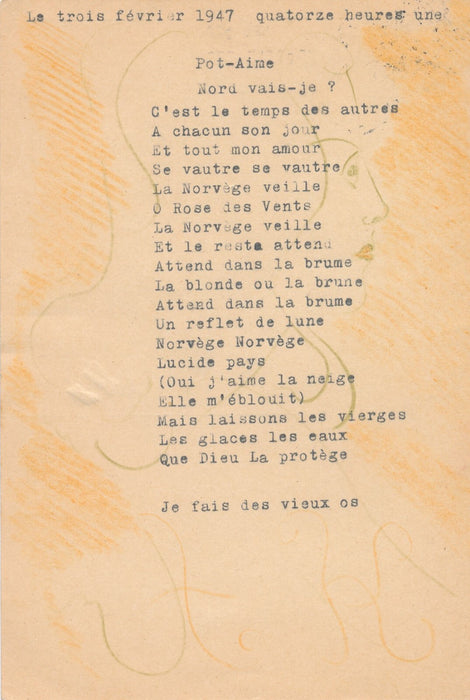 Le trois février 1947 quatorze heures une
Pot-Aime
Nord vais-je ?
C'est le temps des autres
A chacun son jour
Et tout mon amour
Se vautre se vautre
La Norvège veille
O Rose des Vents
La Norvège veille
Et le resta attend
Attend dans la brume
La blonde ou la brune
Attend dans la brume
Un reflet de lune
Norvège Norvège
Lucide pays
(Oui j'aime la neige
Elle m'éblouit)
Mais laissons les vierges
Les glaces les eaux
Que Dieu La protège
Je fais des vieux os